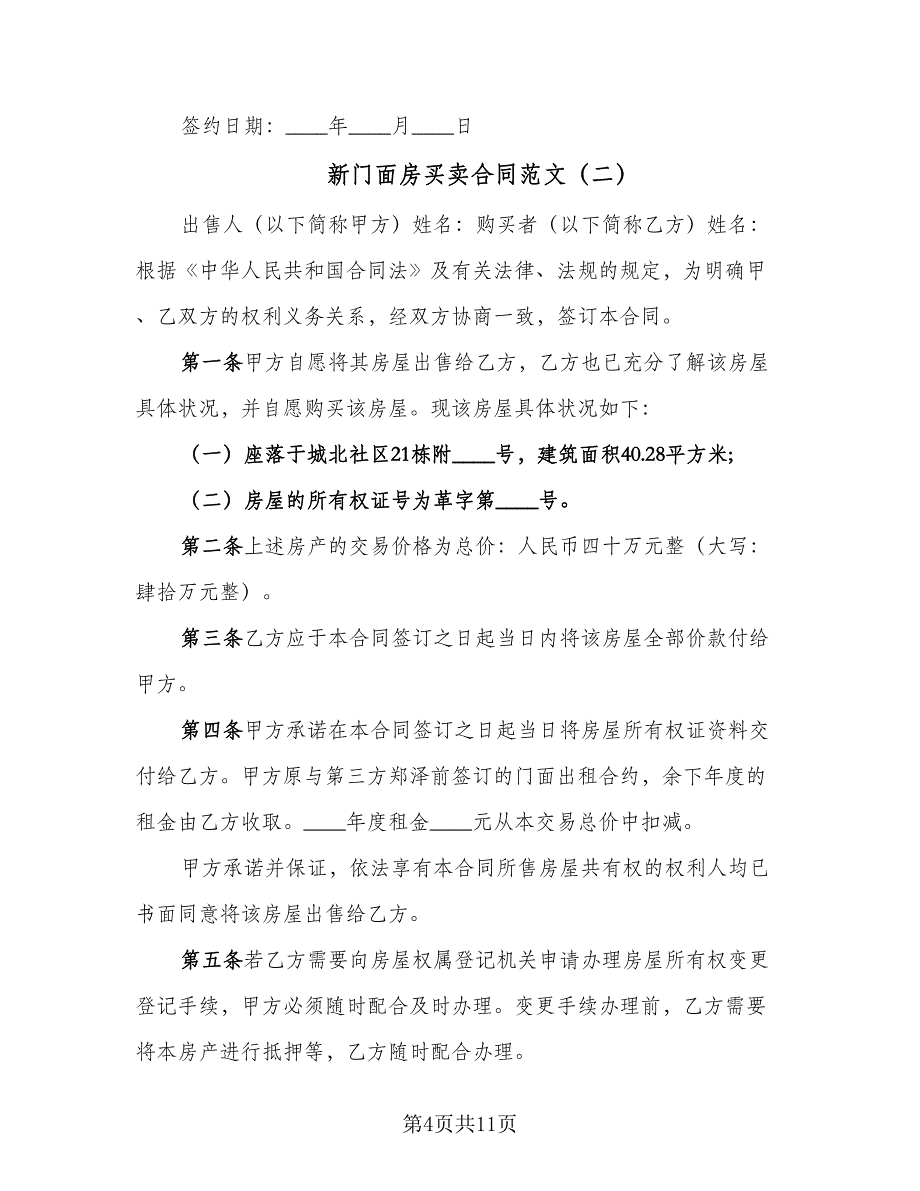 签约日期：____年____月____日
新门面房买卖合同范文（二）
出售人（以下简称甲方）姓名：购买者（以下简称乙方）姓名：
根据《中华人民共和国合同法》及有关法律、法规的规定，为明确甲
、乙双方的权利义务关系，经双方协商一致，签订本合同。
第一条甲方自愿将其房屋出售给乙方，乙方也已充分了解该房屋
具体状况，并自愿购买该房屋。现该房屋具体状况如下：
（一）座落于城北社区21栋附____号，建筑面积40.28平方米;
（二）房屋的所有权证号为革字第____号。
第二条上述房产的交易价格为总价：人民币四十万元整（大写：
肆拾万元整）。
第三条乙方应于本合同签订之日起当日内将该房屋全部价款付给
甲方。
第四条甲方承诺在本合同签订之日起当日将房屋所有权证资料交
付给乙方。甲方原与第三方郑泽前签订的门面出租合约，余下年度的
租金由乙方收取。____年度租金____元从本交易总价中扣减。
甲方承诺并保证，依法享有本合同所售房屋共有权的权利人均已
书面同意将该房屋出售给乙方。
第五条若乙方需要向房屋权属登记机关申请办理房屋所有权变更
登记手续，甲方必须随时配合及时办理。变更手续办理前，乙方需要
将本房产进行抵押等，乙方随时配合办理。
第4页共11页